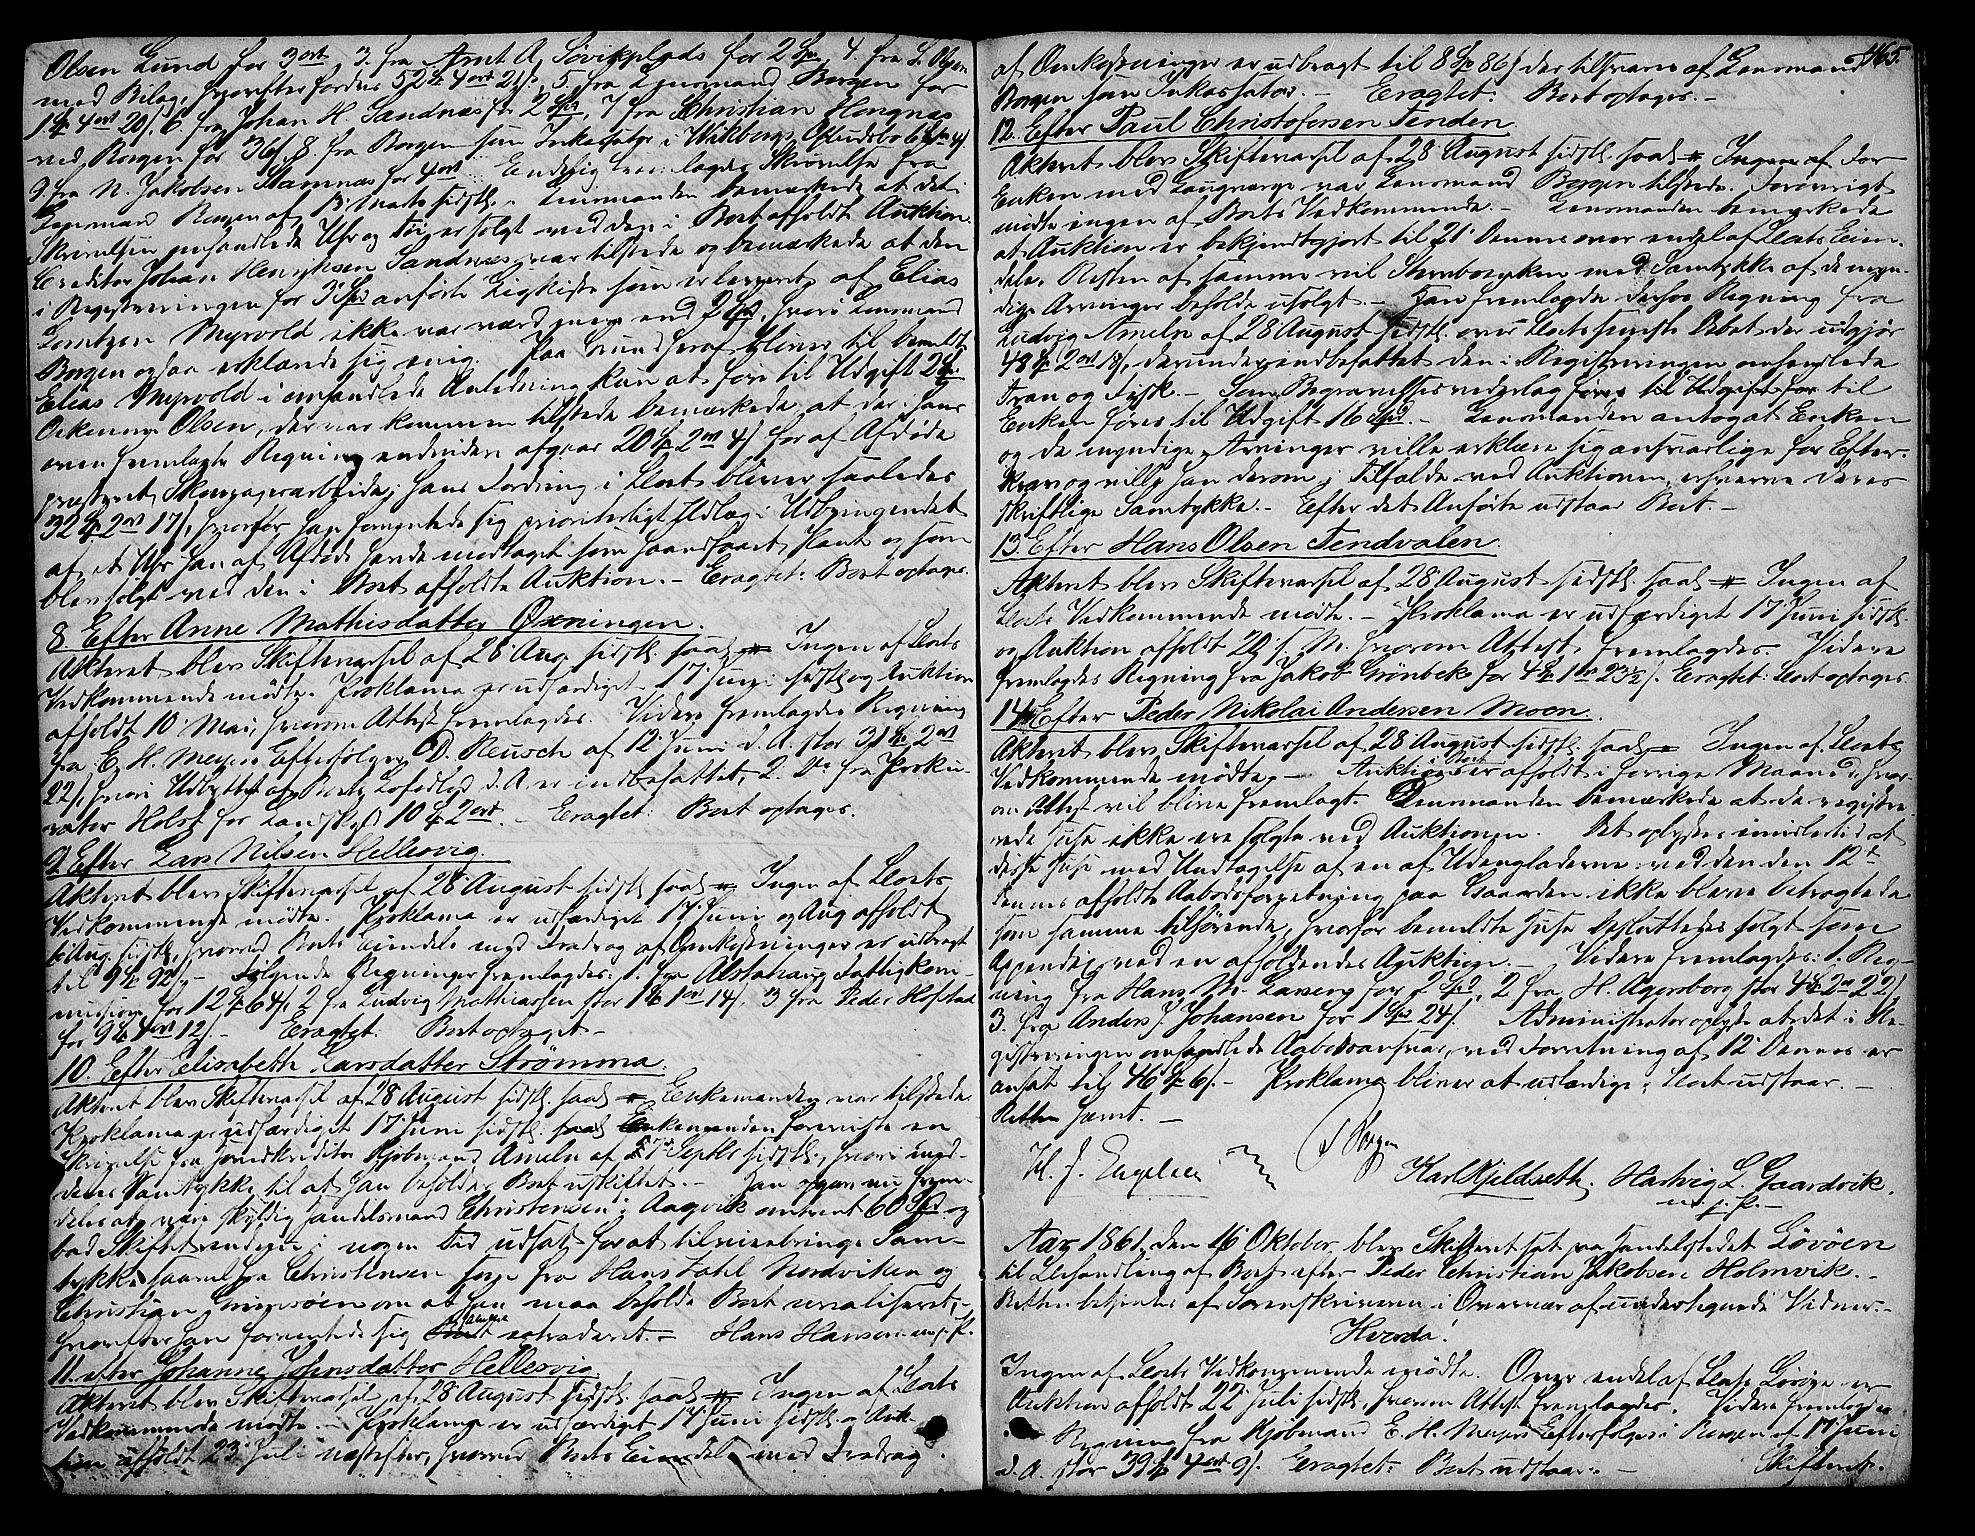 Olsen Lund for 3 ort, 3. fra Arnt A. Søvikplads for 2 Spd, 4. fra L. Olsen
med Bilag, hvorefter fordres 52 Spd 4 ort 21 s, 5. fra Lensmand Borgen for
1 Spd 4 ort 20 s, 6 fra Johan H. Sandnæs for 2 Spd, 7 fra Christian Hongnæs
ved Borgen for 36 s, 8. fra Borgen som Inkassator i Wikbergs Opbudsbo
9 fra N. Jakobsen Stamnæs for 4 ort. Endelig fremlagdes Skrivelse fra
Lensmand Borgen af 13 Marts sidstl. Lensmanden bemærkede at det i
Skrivelsen omhandlede Uhr og Tøi er solgt ved den i Boet afholdte Auktion.
Creditor Johan Henriksen Sandnæs var tilstede og bemærkede at den
i Registreringen for 3 Spd anførte Ligkiste som er leveret af Elias
Lorntzen Myrvold ikke var værd mere end 2 Spd, hvori Lensmand
Borgen ogsaa erklærede sig enig. Paa Grund heraf bliver til bemeldte
Elias Myrvold i omhandlede Anledning kun at føre til Udgift 2 Spd
Olsen, der var kommen tilstede bemærkede, at der i hans
oven fremlagte Regning endvidere afgaar 20 Spd 2 ort 4 s for af Afdøde
præsteret Skomagerarbeide; hans Fordring i Boet bliver saaledes
32 Spd 2 ort 17 s, hvorfor han formente sig prioriterligt Udlæg i Udbringendet
af et Uhr han af Afdøde havde modtaget som haandfaaet Pant og som
blev solgt ved den i Boet afholdte Auktion. – Eragtet: Boet optages.
8 Efter Anne Mathisdatter Øxningen.
Akteret blev Skiftevarsel af 28 Aug. sidstl. saal. # Ingen af Boets
Vedkommende mødte. Proklama er udfærdiget 17 Juni sidstl og Auktion
afholdt 10 Mai, hvorom Attest fremlagdes. Videre fremlagdes Regning
fra E. H. Meyers Efterfølger D. Reusch af 12 Juni d. A. stor 31 Spd 2 ort
22 s, hvori Udbyttet af Boets Lofodlod d. A. er indbefattet, 2. Do fra Proku-
rator Holst for Landskyld 10 Spd 2 ort. – Eragtet: Boet optages.
9 Efter Lars Nilsen Hellesvig.
Akteret blev Skiftevarsel af 28 August sidstl. saal. # Ingen af Boets
Vedkommende mødte. Proklama er udfærdiget 17 Juni og Auq afholdt
6 Aug. sidstl, hvorved Boets Eiendele med Fradrag af Omkostninger er udbragt
til 9 Spd 92 s. – Følgende Regninger fremlagdes: 1. fra Alstahaug Fattigkom-
mission for 12 Spd 64 s, 2 fra Ludvig Mathiassen stor 1 Spd 1 ort 14 s, 3 fra Peder Hofstad
for 9 Spd 4 ort 12 s. – Eragtet: Boet optaget –
10. Efter Elisabeth Larsdatter Strømma.
Akteret blev Skiftevarsel af 28 August sidstl. saal. # Enkemanden var tilstede.
Proklama er udfærdiget 17 Juni sidstl. Enkemanden foreviste en
Skrivelse fra Hovedkreditor Kjøbmand Ameln af Septbr sidstl., hvori med-
deles Samtykke til at han beholder Boet uskiftet. – Han opgav nu frem-
deles at være skyldig Handelsmand Christensen i Aagvik omtrent 60 Spd og
bad Skiftet endnu i nogen Tid udsat for at tilveiebringe Sam-
tykke saavel fra Christensen som fra Hans Dahl Nordviken og
Christian Grimsøen om at han maa beholde Boet urealiseret, –
hvorefter han forventede sig samme extraderet. – Hans Hansen m. p. P.
11. efter Johanne Johnsdatter Hellesvig.
Akteret blev Skiftevarsel af 28 August sidstl. saal. # Ingen af Boets
Vedkommende mødte. – Proklama er udfærdiget 17 Juni sidstl. og Auk-
tion afholdt 23 Juli næstefter, hvorved Boets Eiendele med Fradrag
465.
af Omkostninger er udbragt til 8 Spd 86 s der tilsvares af Lensmand
Borgen som Inkassator. – Eragtet: Boet optages. –
12. Efter Paul Christofersen Tenden.
Akteret blev Skiftevarsel af 28 August sidstl. saal. # Ingen af For
Enken med Laugværge var Lensmand Borgen tilstede. Forøvrigt
mødte ingen af Boets Vedkommende. – Lensmanden bemærkede
at Auktion er bekjendtgjort til 21 Dennes over endel af Boets Eien-
dele. Resten af samme vil Stervboenken med Samtykke af de myn-
dige Arvinger beholde usolgt. – Han fremlagde derhos Regning fra
Ludvig Ameln af 28 August sidstl. over Boets seneste Debet der udgjør
48 Spd 2 ort, derunder indbefattet den i Registreringen omhandlede
Tran og Fisk. – Som Begravelsesvederlag føres til Udgift for til
Enken føres til Udgift 16 Spd. – Lensmanden antog at Enken
og de myndige Arvinger ville erklære sig ansvarlige for Efter-
krav og ville han derom i Tilfælde ved Auktionen erhverve deres
skriftlige Samtykke. – Efter det Anførte udstaar Boet. –
13. Efter Hans Olsen Tendvalen.
Akteret blev Skiftevarsel af 28 August sidstl. saal. # Ingen af
Boets Vedkommende mødte. – Proklama er udfærdiget 17 Juni sidstl.
og Auktion afholdt 20 s. M. hvorom Attest fremlagdes. Videre
fremlagdes Regning fra Jakob Grønbek for 4 Spd 1 ort 23½ s. Eragtet: Boet optages.
14. Efter Peder Nikolai Andersen Moen.
Akteret blev Skiftevarsel af 28 August sidstl. saal. # Ingen af Boets
Vedkommende mødte. – Auktion i Boet er afholdt i forrige Maaned, hvor-
om Attest vil blive fremlagt. Lensmanden bemærkede at de registre-
rede Huse ikke ere solgte ved Auktionen. Det oplystes imidlertid at
disse Huse med Undtagelse af en af Udengladerne ved den den 12te
Dennes afholdte Aabodsforretning paa Gaarden ikke bleve betragtede
som samme tilhørende, hvorfor bemeldte Huse besluttedes solgt som
Appendix ved en afholdendes Auktion. – Videre fremlagdes: 1. Reg-
ning fra Hans M. Larsen for 2 Spd, 2 fra H. Agersborg stor 4 Spd 2 ort 22 s
3. fra Anders J. Johansen for 1 Spd 24 s. Administrator oplyste at det i Re-
gistreringen omhandlede Aabodsansvar, ved Forretning af 12 Dennes er
ansat til 46 Spd 6 s. – Proklama bliver at udfærdige; Boet udstaar. –
Retten hævet. –
H. J. Engelsen
Borgen
Karl Kjeldseth. Hartvig L. Gaardvik.
m. p. P. –
Aar 1861, den 16 Oktober blev Skifteret sat paa Handelsstedet Løvøen
til Behandling af Boet efter Peder Christian Jakobsen Holmvik. –
Retten betjentes af Sorenskriveren i Overvær af undertegnede Vidner. –
Hvorda!
Ingen af Boets Vedkommende mødte. Over endel af Boets Løsøre er
Auktion afholdt 22 Juli sidstl., hvorom Attest fremlagdes. Videre fremlagdes
Regning fra Kjøbmand E. H. Meyers Efterfølger i Bergen af 17 Juni
d. A. stor 39 Spd 4 ort 9 s. Eragtet: Boet udstaar. – Skifteret.